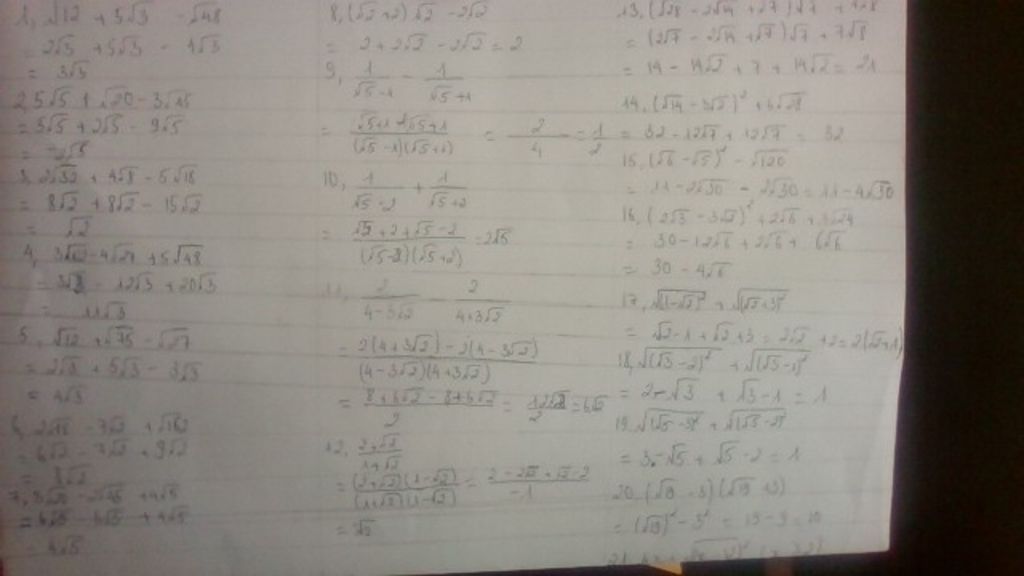 1, √12 + 5√3 - √48
= 2√3 + 5√3 - 4√3
= 3√3
2, 5√5 + √20 - 3√45
= 5√5 + 2√5 - 9√5
= -2√5
3, 2√32 + 4√8 - 5√18
= 8√2 + 8√2 - 15√2
= √2
4, 3√12 - 4√27 + 5√48
- 12√3 + 20√3
= 11√3
5, √12 + √75 - √27
= 2√3 + 5√3 - 3√3
= 4√3
6, 2√18 - 7√2 + √162
= 6√2 - 7√2 + 9√2
= 8√2
7, 3√20 - 2√45 + 4√5
= 6√5 - 6√5 + 4√5
= 4√5
8, (√2 + 2)√2 - 2√2
= 2 + 2√2 - 2√2 = 2
9, 1/(√5-1) - 1/(√5+1)
= (√5+1-√5+1)/((√5-1)(√5+1)) = 2/4 = 1/2
10, 1/(√5-2) + 1/(√5+2)
= (√5+2+√5-2)/((√5-2)(√5+2)) = 2√5
11, 2/(4-3√2) - 2/(4+3√2)
= (2(4+3√2) - 2(4-3√2))/((4-3√2)(4+3√2))
= (8+6√2-8+6√2)/2 = 12√2/2 = 6√2
12, (2+√2)/(1+√2)
= ((2+√2)(1-√2))/((1+√2)(1-√2)) = (2-2√2+√2-2)/-1
= √2
13, (√28 - 2√14 + √7)√7 + 7√8
= (2√7 - 2√14 + √7)√7 + 7√8
= 14 - 14√2 + 7 + 14√2 = 21
14, (√14 - 3√2)² + 6√28
= 32 - 12√7 + 12√7 = 32
15, (√6 - √5)² - √120
= 11 - 2√30 - 2√30 = 11 - 4√30
16, (2√3 - 3√2)² + 2√6 + 3√24
= 30 - 12√6 + 2√6 + 6√6
= 30 - 4√6
17, √(1-√2)² + √(√2+3)²
= √2 - 1 + √2 + 3 = 2√2 + 2 = 2(√2+1)
18, √(√3-2)² + √(√3-1)²
= 2 - √3 + √3 - 1 = 1
19, √(√5-3)² + √(√5-2)²
= 3 - √5 + √5 - 2 = 1
20, (√19 - 3)(√19 + 3)
= (√19)² - 3² = 19 - 9 = 10